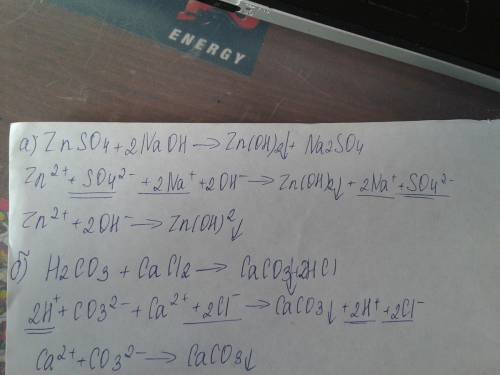 ENERGY
а) ZnSO4 + 2NaOH → Zn(OH)2↓ + Na2SO4
Zn²⁺ + SO4²⁻ + 2Na⁺ + 2OH⁻ → Zn(OH)2↓ + 2Na⁺ + SO4²⁻
Zn²⁺ + 2OH⁻ → Zn(OH)2↓
б) H2CO3 + CaCl2 → CaCO3↓ + 2HCl
2H⁺ + CO3²⁻ + Ca²⁺ + 2Cl⁻ → CaCO3↓ + 2H⁺ + 2Cl⁻
Ca²⁺ + CO3²⁻ → CaCO3↓